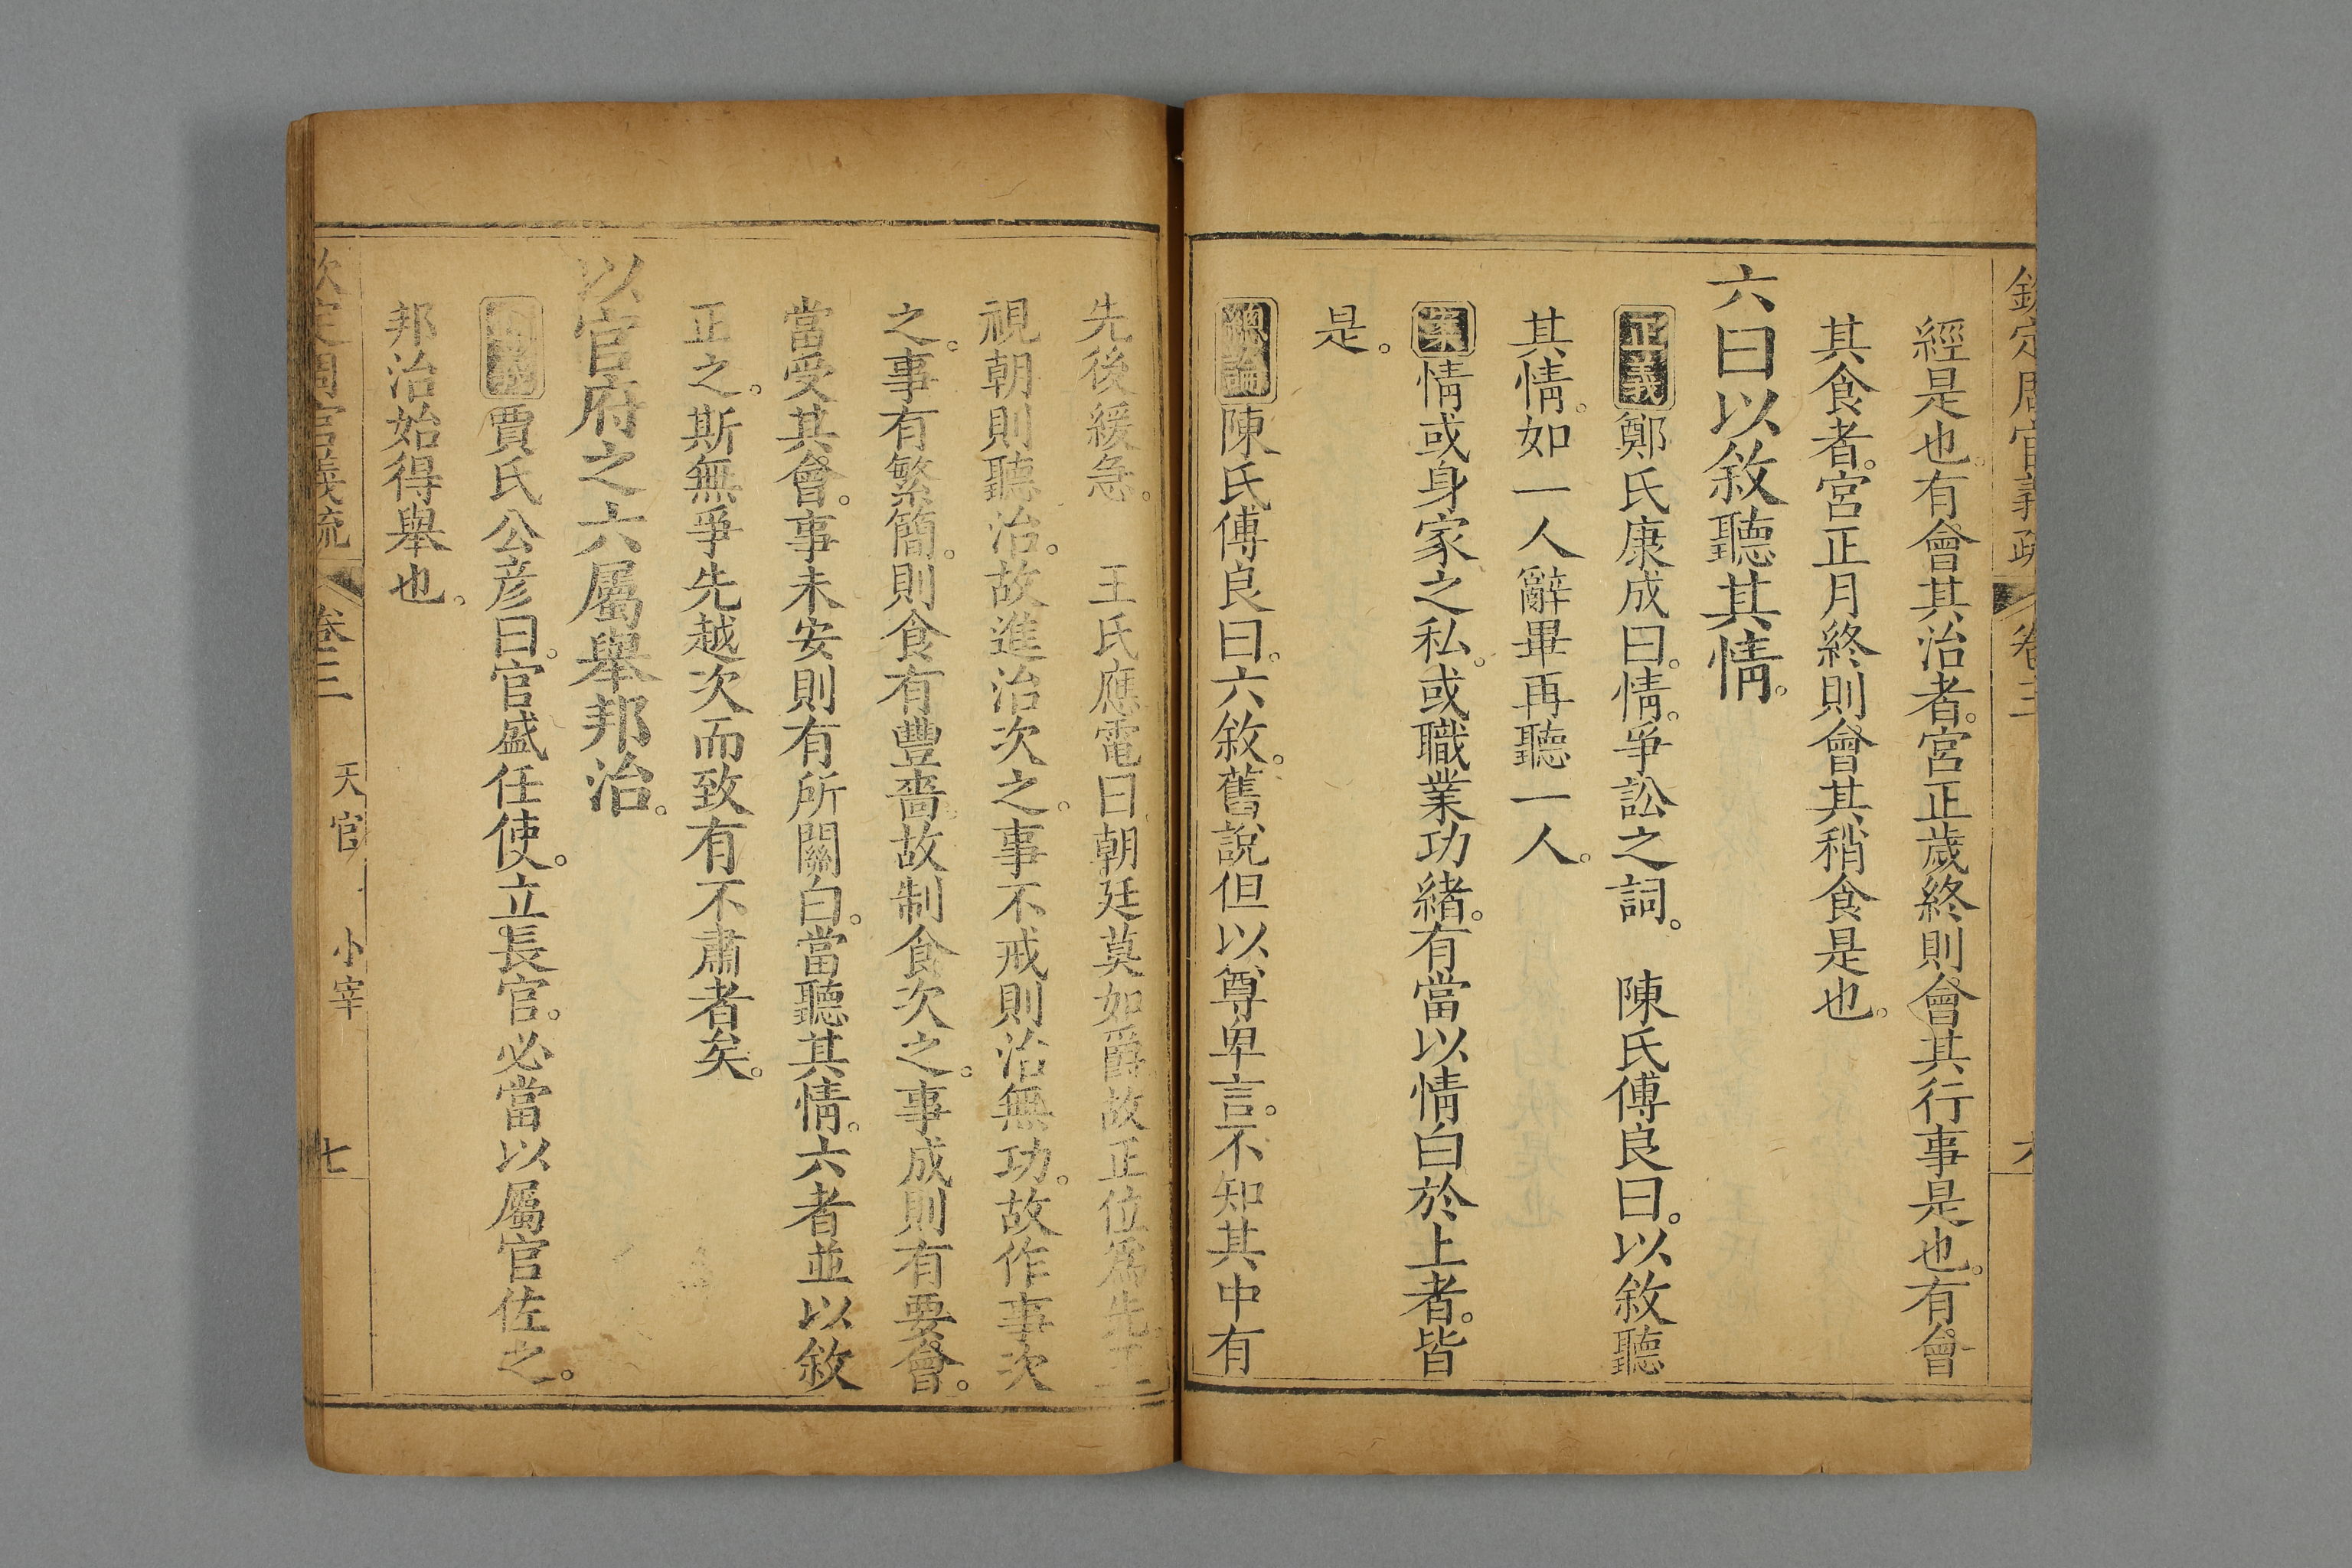 欽定周官義疏 卷三 六
經是也。有會其治者。宮正歲終則會其行事是也。有會
其食者。宮正月終則會其稍食是也。
六曰以敘聽其情。
正義鄭氏康成曰。情。爭訟之詞。 陳氏傅良曰。以敘聽
其情。如一人辭畢再聽一人。
案情或身家之私。或職業功緒。有當以情白於上者。皆
是。
總論陳氏傅良曰。六敘。舊說但以尊卑言。不知其中有
先後緩急。 王氏應電曰朝廷莫如爵故正位爲先。王
視朝則聽治。故進治次之。事不戒則治無功。故作事次
之。事有繁簡。則食有豐嗇。故制食次之。事成則有要會。
當受其會。事未安則有所關白。當聽其情。六者並以敘
正之。斯無爭先越次而致有不肅者矣。
以官府之六屬舉邦治。
正義賈氏公彥曰。官盛任使。立長官。必當以屬官佐之。
邦治始得舉也。
欽定周官義疏 卷三 天官 小宰 七